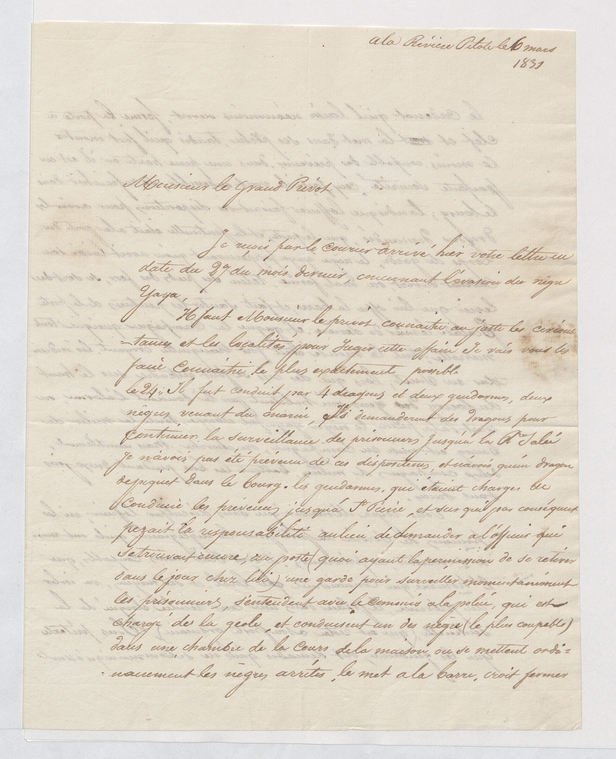 a la Rivière Pilote le 6 mars
1831
Monsieur le Grand Prévot
Je reçois par le courier arrivé hier votre lettre en
date du 27 du mois dernier concernant l'évasion des nègre
Yaya.
Il faut Monsieur le prévot connaitre au juste les circons
-tances et les localités pour juger cette affaire Je vais vous les
faire connaitre le plus exactement possible
le 24. Il fut conduit par 4 dragons et deux gendarmes, deux
nègres venant du marin, Ils demanderent des dragons pour
continuer la surveillance des prisonniers jusqu'à la Rre Salée
Je n'avois pas été prévenu de ces dispositions et n'avois qu'un dragon
de piquet dans le bourg. les gendarmes, qui étaient chargés de
conduire les prévenus jusqu'à St Pierre, et sur qui par conséquent
pezait la responsabilité au lieu de demander a l'officier qui
se trouvait encore au poste (quoi ayant la permission de se retirer
dans le jour chez lui) une garde pour surveiller momentanement
les prisonniers, s'entendent avec le commis a la police, qui est
chargé de la geole, et conduisent un des nègres (le plus coupable)
dans une chambre de la cours de la maison, ou se mettent ordi-
nairement les nègres arrêtés, le met a la barre, croit fermer